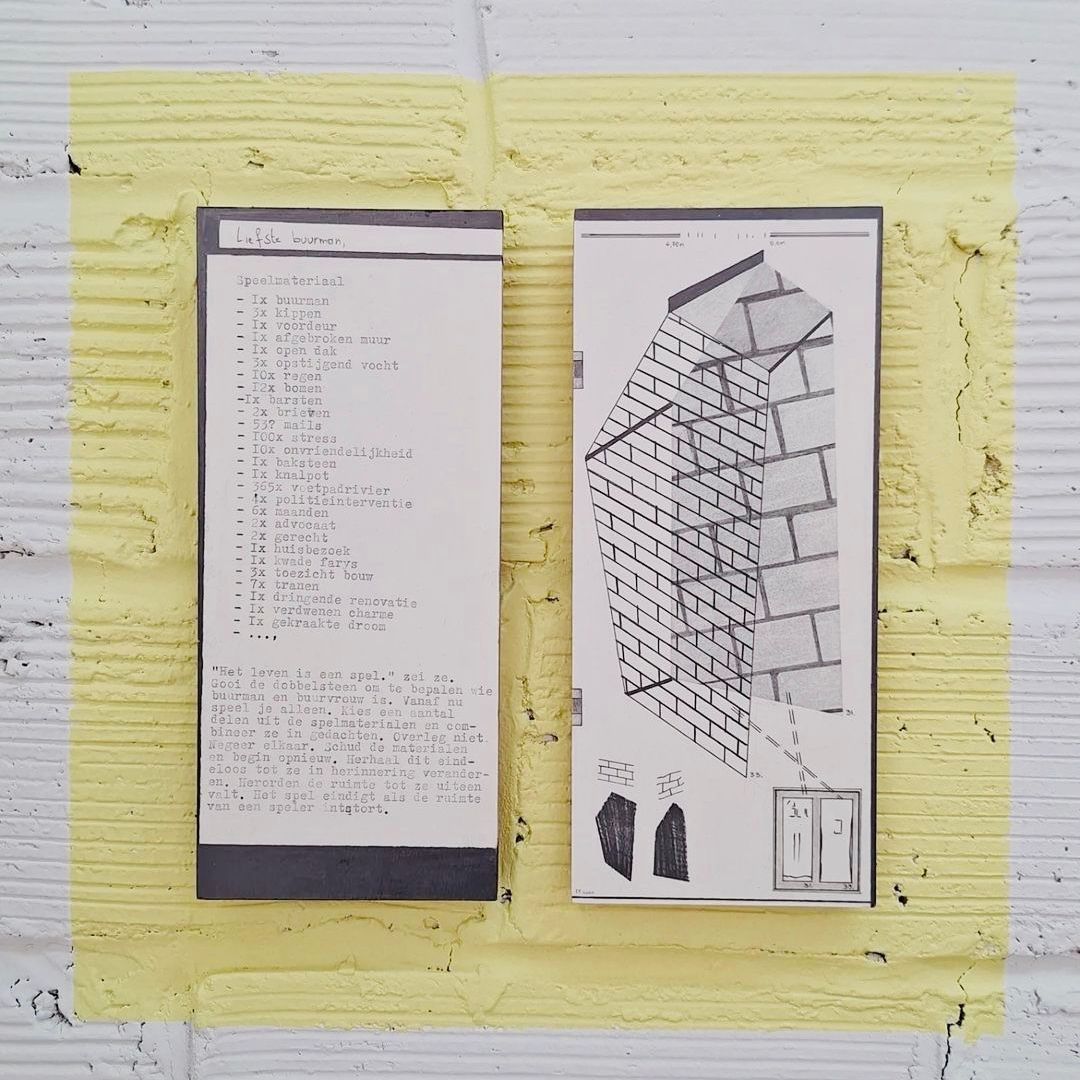 Liefste buurman,
Speelmateriaal
- Ix buurman
- 3x kippen
- Ix voordeur
- Ix afgebroken muur
- Ix open dak
- 3x opstijgend vocht
- IOx regen
- I2x bomen
-Ix barsten
- 2x brieven
- 53? mails
- IOOx stress
- IOOx onvriendelijkheid
- Ix baksteen
- Ix knalpot
- 365x voetpadrivier
- 4x politieinterventie
- 6x maanden
- 2x advocaat
- 2x gerecht
- Ix huisbezoek
- Ix kwade farys
- 3x toezicht bouw
- 7x tranen
- Ix dringende renovatie
- Ix verdwenen charme
- Ix gekraakte droom
- ...,
"Het leven is een spel." zei ze.
Gooi de dobbelsteen om te bepalen wie
buurman en buurvrouw is. Vanaf nu
speel je alleen. Kies een aantal
delen uit de spelmaterialen en com-
bineer ze in gedachten. Overleg niet.
Negeer elkaar. Schud de materialen
en begin opnieuw. Herhaal dit eind-
eloos tot ze in herinnering verander-
en. Herorden de ruimte tot ze uiteen
valt. Het spel eindigt als de ruimte
van een speler intstort.
31.
33.
31.
33.